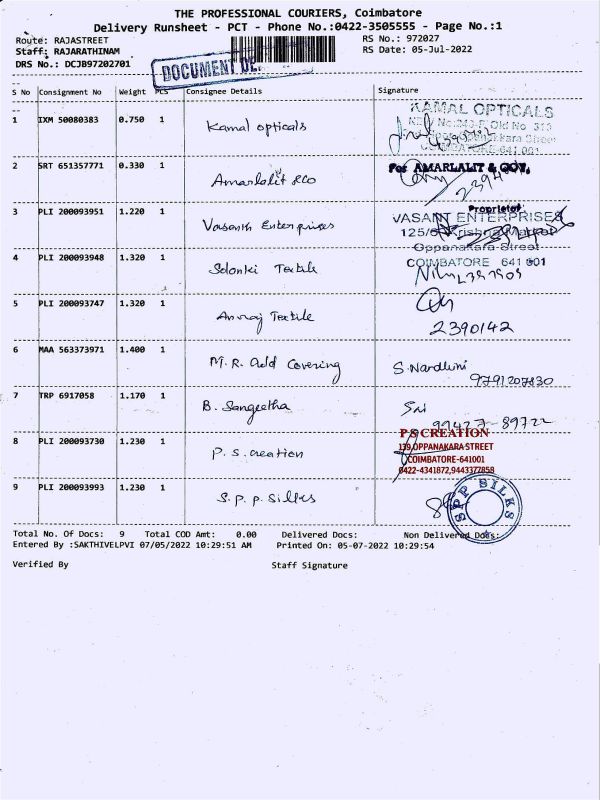 THE PROFESSIONAL COURIERS, Coimbatore
Delivery Runsheet - PCT - Phone No.:0422-3505555 - Page No.:1
Route: RAJASTREET RS No.: 972027
Staff: RAJARATHINAM RS Date: 05-Jul-2022
DRS No.: DCJB97202701
DOCUMENT
S No Consignment No Weight PCS Consignee Details Signature
1 IXM 50080383 0.750 1 Kamal opticals
KAMAL OPTICALS
COIMBATORE-641 001
2 SRT 651357771 0.330 1 Amarlalit &co
For AMARLALIT & GOV,
2394
Proprietor
3 PLI 200093951 1.220 1 Vasanth Enterprises
VASANT ENTERPRISES
125/6 Krishna
Oppanakara Street
COIMBATORE 641 001
4 PLI 200093948 1.320 1 Solonki Textile
5 PLI 200093747 1.320 1 Anuraj Textile
2390142
6 MAA 563373971 1.400 1 M.R. Covering S. Nardhini
9791207830
7 TRP 6917058 1.170 1 B. Sangeetha Sri
99427-89722
8 PLI 200093730 1.230 1 P. S. creation
P S CREATION
139,OPPANAKARA STREET
COIMBATORE-641001
0422-4341872,9443377858
9 PLI 200093993 1.230 1 S. P. P. Silks
SPP SILKS
Total No. Of Docs: 9 Total COD Amt: 0.00 Delivered Docs: Non Delivered Docs:
Entered By :SAKTHIVELPVI 07/05/2022 10:29:51 AM Printed On: 05-07-2022 10:29:54
Verified By Staff Signature